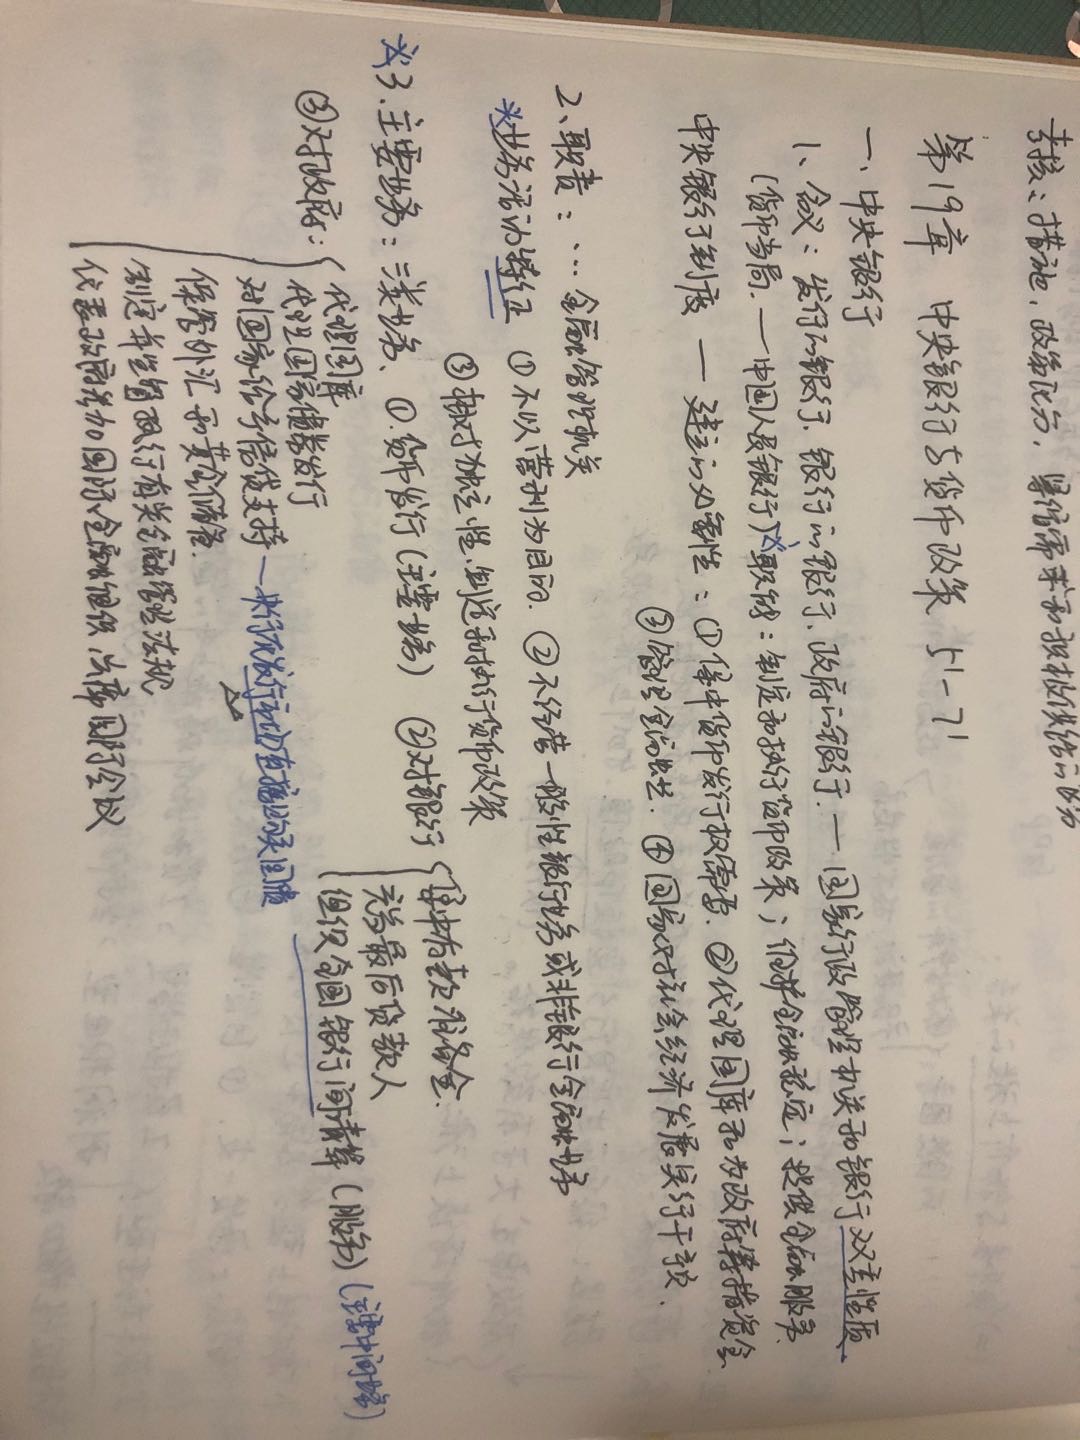 考核：措施、政策配方，
第19章 中央银行与货币政策 51-71
一、中央银行
1、含义：发行的银行、银行的银行、政府的银行. — 国家行政管理机关和银行双重性质.
(货币当局. — 中国人民银行) ☆职能：制定和执行货币政策；维护金融稳定；提供金融服务
中央银行制度 — 建立的必要性：①集中货币发行权需要. ②代理国库和为政府筹措资金
③管理金融业. ④国家对社会经济发展实行干预.
2、职责：… 金融管理机关
☆业务活动特征 ①不以营利为目的. ②不经营一般性银行业务或非银行金融业务
③相对独立性.制定和执行货币政策
☆3.主要业务：三类业务、①.货币发行(主要业务) ②对银行 { 集中存款准备金.
充当最后贷款人
组织全国银行间清算(服务) (主要中间业务)
③对政府：{ 代理国库
代理国家债券发行
对国家给予信贷支持 — 央行不认购直接购买国债
保管外汇和黄金储备.
制定并监督执行有关金融管理法规
代表政府参加国际金融组织，出席国际会议